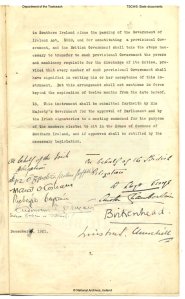 Department of the Taoiseach
TSCH/S State documents
in Southern Ireland since the passing of the Government of
Ireland Act, 1920, and for constituting a provisional Govern-
ment, and the British Government shall take the steps neces-
sary to transfer to such provisional Government the powers
and machinery requisite for the discharge of its duties, pro-
vided that every member of such provisional Government shall
have signified in writing his or her acceptance of this instru-
ment. But this arrangement shall not continue in force
beyond the expiration of twelve months from the date hereof.
18. This instrument shall be submitted forthwith by His
Majesty's Government for the approval of Parliament and by the
Irish signatories to a meeting summoned for the purpose of
the members elected to sit in the House of Commons of Southern
Ireland, and if approved shall be ratified by the necessary
legislation.
On behalf of the Irish
Delegation
On behalf of the British
Delegation
D Lloyd George
Austen Chamberlain
Birkenhead.
Winston S. Churchill
December 6, 1921.
7.
© National Archives, Ireland